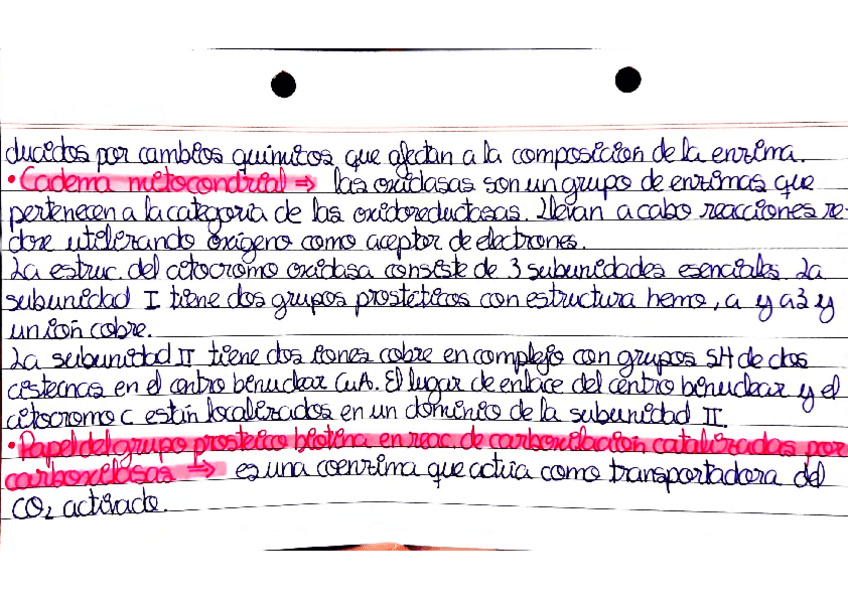 ducidos por cambios químicos que afectan a la composición de la enzima.
• Cadena mitocondrial ⇒ las oxidasas son un grupo de enzimas que
pertenecen a la categoría de las oxidoreductasas. Llevan a cabo reacciones re-
dox utilizando oxígeno como aceptor de electrones.
La estruc. del citocromo oxidasa consiste de 3 subunidades esenciales. La
subunidad I tiene dos grupos prostéticos con estructura hemo, a y a3 y
un ion cobre.
La subunidad II tiene dos iones cobre en complejo con grupos SH de dos
cisteínas en el centro binuclear CuA. El lugar de enlace del centro binuclear y el
citocromo c están localizados en un dominio de la subunidad II.
• Papel del grupo prostético biotina en reac. de carboxilación catalizadas por
carboxilasas ⇒ es una coenzima que actúa como transportadora del
CO₂ activado.